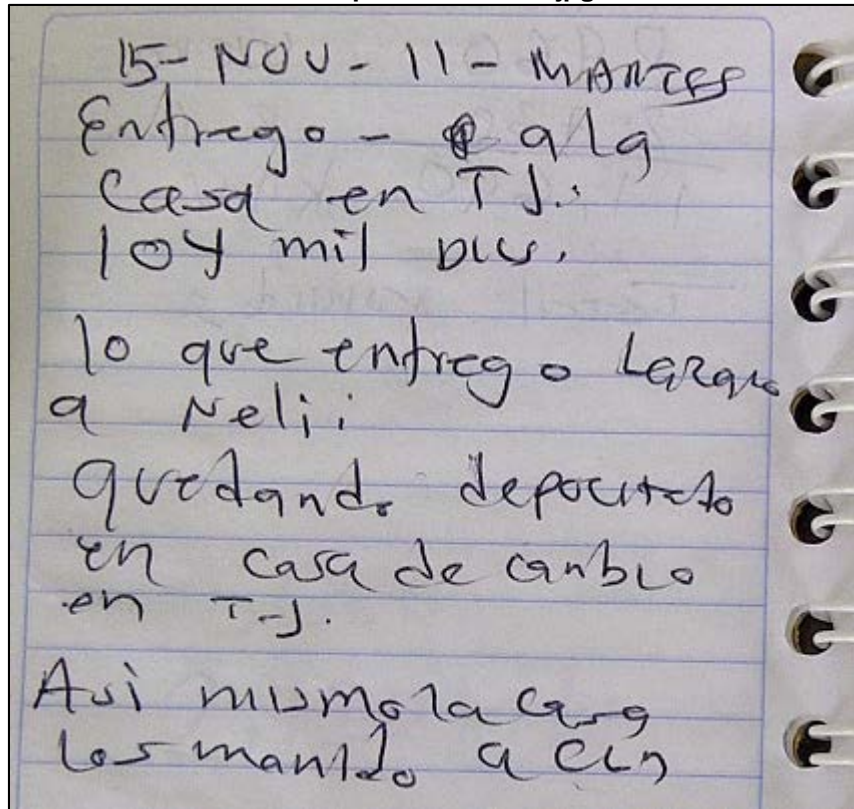 15-NOV-11-MARTES
Entrego - a la
Casa en TJ.:
104 mil DLS.
lo que entrego Lazaro
a Neli:
quedando depocitado
en casa de cambio
en T-J.
Asi mismo la casa
los mando a CLN